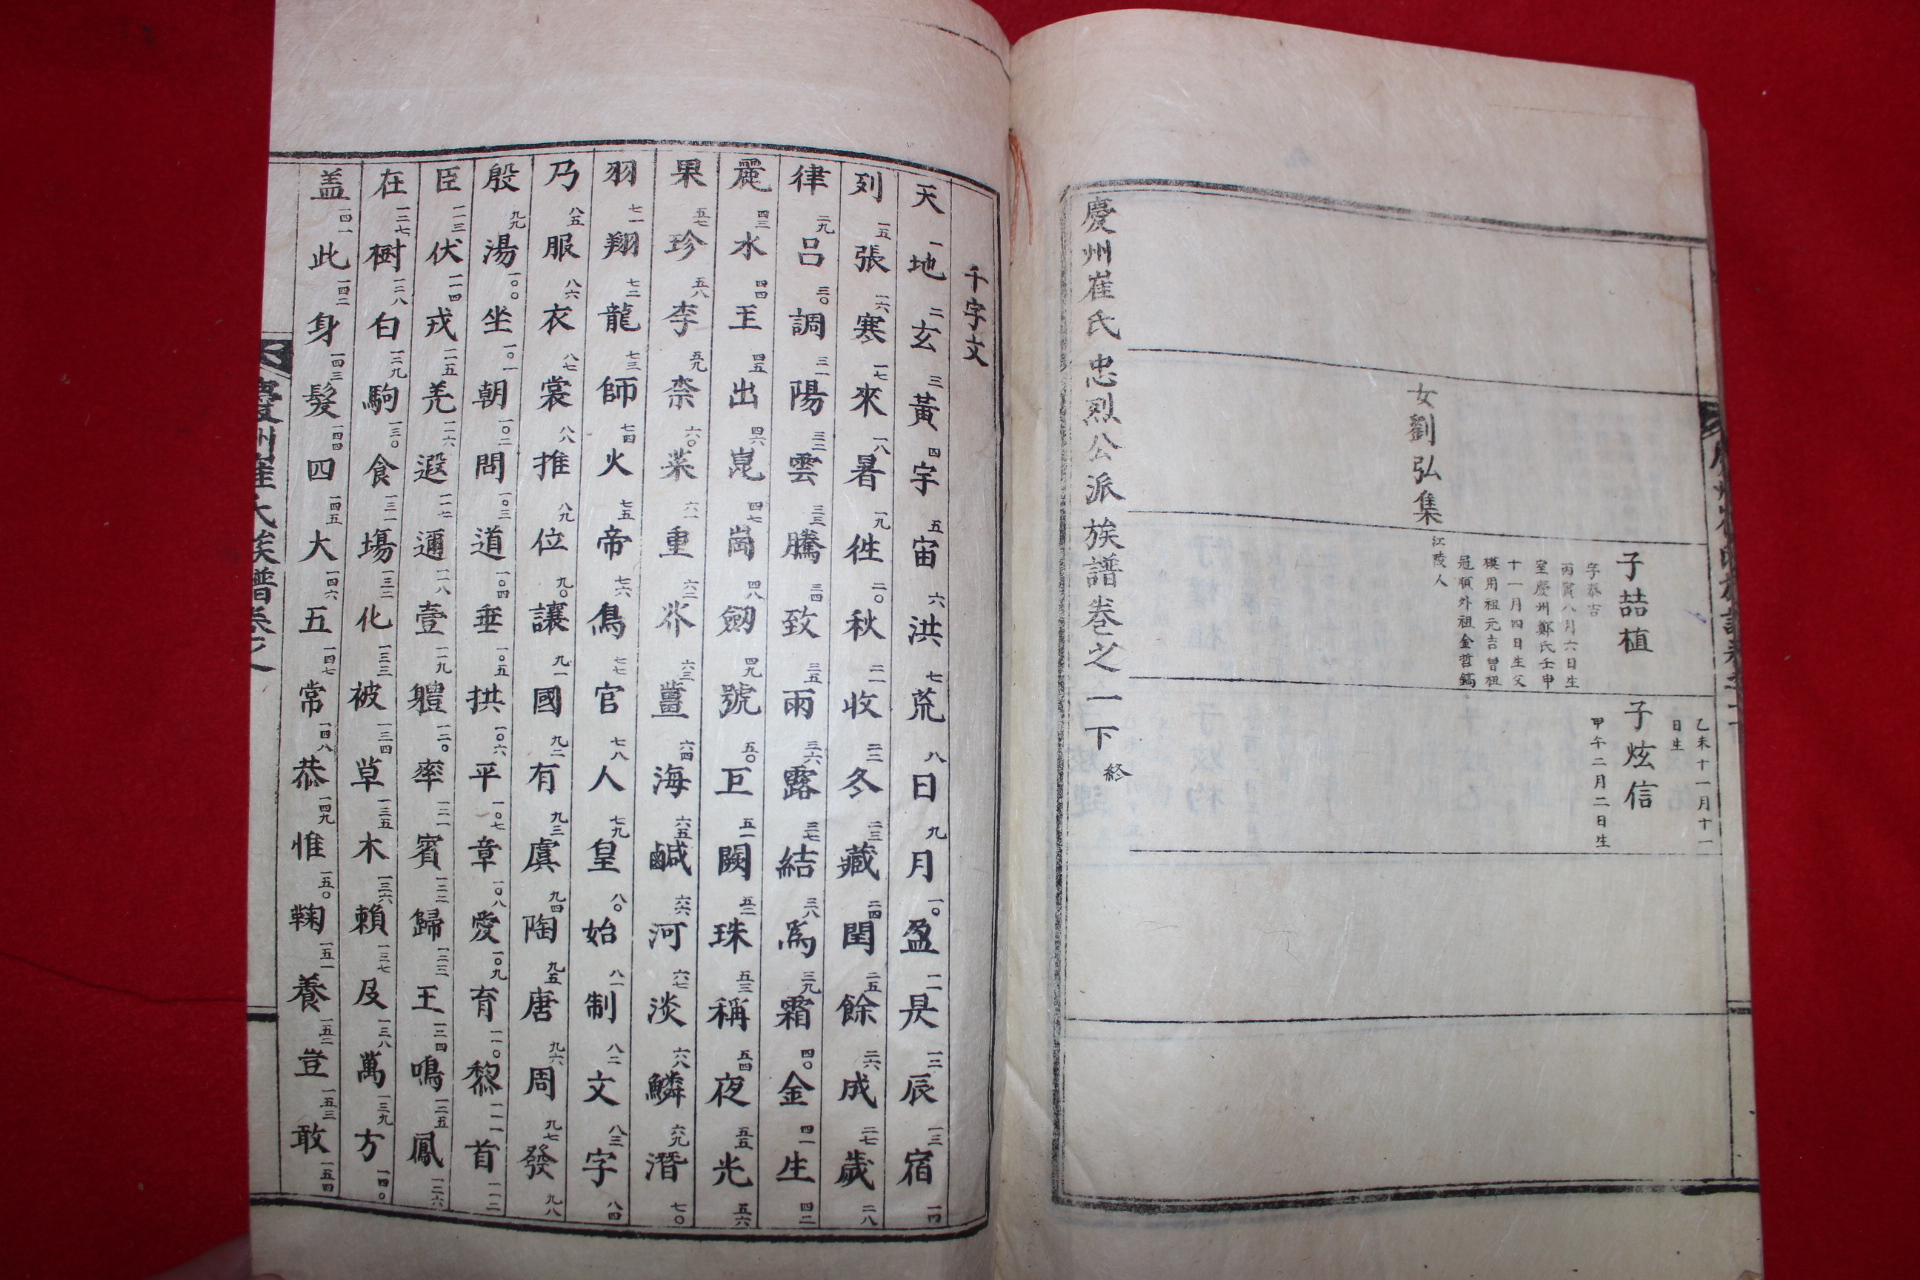 乙未十一月十一
日生
子炫信
甲午二月二日生
子喆植
字泰吉
丙寅八月六日生
室慶州鄭氏壬申
十一月四日生父
瑛用祖元吉曾祖
冠順外祖金哲鎬
女劉弘集
江陵人
慶州崔氏忠烈公派族譜卷之一下終
千字文
天一地二玄三黃四宇五宙六洪七荒八日九月一〇盈一一昃一二辰一三宿一四
列一五張一六寒一七來一八暑一九徃二〇秋二一收二二冬二三藏二四閏二五餘二六成二七歲二八
律二九呂三〇調三一陽三二雲三三騰三四致三五雨三六露三七結三八爲三九霜四〇金四一生四二
麗四三水四四玉四五出四六崑四七崗四八劒四九號五〇巨五一闕五二珠五三稱五四夜五五光五六
果五七珍五八李五九柰六〇菜六一重六二芥六三薑六四海六五鹹六六河六七淡六八鱗六九潛七〇
羽七一翔七二龍七三師七四火七五帝七六鳥七七官七八人七九皇八〇始八一制八二文八三字八四
乃八五服八六衣八七裳八八推八九位九〇讓九一國九二有九三虞九四陶九五唐九六周九七發九八
殷九九湯一〇〇坐一〇一朝一〇二問一〇三道一〇四垂一〇五拱一〇六平一〇七章一〇八愛一〇九育一一〇黎一一一首一一二
臣一一三伏一一四戎一一五羌一一六遐一一七邇一一八壹一一九軆一二〇率一二一賓一二二歸一二三王一二四鳴一二五鳳一二六
在一二七樹一二八白一二九駒一三〇食一三一場一三二化一三三被一三四草一三五木一三六賴一三七及一三八萬一三九方一四〇
盖一四一此一四二身一四三髮一四四四一四五大一四六五一四七常一四八恭一四九惟一五〇鞠一五一養一五二豈一五三敢一五四
慶州崔氏族譜卷之